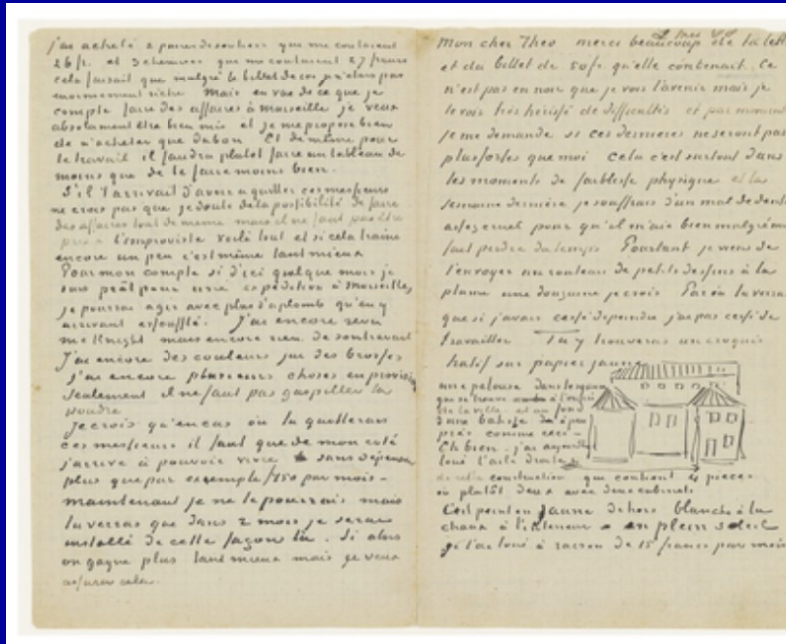 j'ai acheté 2 paires de souliers qui me coutaient
26 fr. et 3 chemises qui me coutaient 27 francs
cela faisait que malgré le billet de 100 je n'étais pas
enormement riche Mais en vue de ce que je
compte faire des affaires à Marseille je veux
absolument être bien mis et je me propose bien
de n'acheter que du bon Et de même pour
le travail il faudra plutot faire un tableau de
moins que de le faire moins bien.
S'il t'arrivait d'avoir a quitter ces messieurs
ne crois pas que je doute de la possibilité de faire
des affaires tout de meme mais il ne faut pas être
pris à l'improviste voilà tout et si cela traine
encore un peu c'est même tant mieux
Pour mon compte si d'ici quelque mois je
suis prêt pour une expédition à Marseille
je pourrai agir avec plus d'aplomb qu'en y
arrivant essoufflé. J'ai encore revu
McKnight mais encore rien de son travail
J'ai encore des couleurs j'ai des brosses
j'ai encore plusieurs choses en provision
seulement il ne faut pas gaspiller la
poudre
Je crois qu'en cas où tu quitterais
ces messieurs il faut que de mon coté
j'arrive à pouvoir vivre sans dépenser
plus que par exemple 150 par mois –
maintenant je ne le pourrais mais
tu verras que dans 2 mois je serai
installé de cette façon là. Si alors
on gagne plus tant mieux mais je veux
assurer cela.
Mon cher Theo merci beaucoup de ta lett
et du billet de 50 fr. qu'elle contenait. Ce
n'est pas en noir que je vois l'avenir mais je
le vois très hérissé de difficultés et par moment
je me demande si ces dernieres ne seront pas
plus fortes que moi Cela c'est surtout dans
les moments de faiblesse physique et la
semaine dernière je souffrais d'un mal de dents
assez cruel pour qu'il m'aie bien malgré m
fait perdre du temps Pourtant je viens de
t'envoyer un rouleau de petits dessins à la
plume une douzaine je crois Par où tu verra
que si j'avais cessé de peindre j'ai pas cessé de
travailler Tu y trouveras un croquis
hatif sur papier jaune
une pelouse dans le square
qui se trouve à l'entrée
de la ville. et au fond
une batisse à peu
près comme ceci –
Eh bien – j'ai aujourd'hui
loué l'aile droite
de cette construction qui contient 4 pieces
ou plutôt deux avec deux cabinets
C'est peint en jaune dehors blanchi à la
chaux à l'interieur – en plein soleil
je l'ai loué à raison de 15 francs par mois